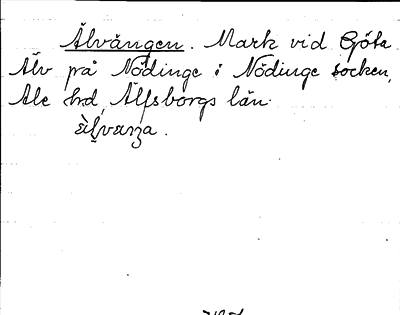 Älvängen. Mark vid Göta
Älv på Nödinge i Nödinge socken,
Ale hd, Älfsborgs län.